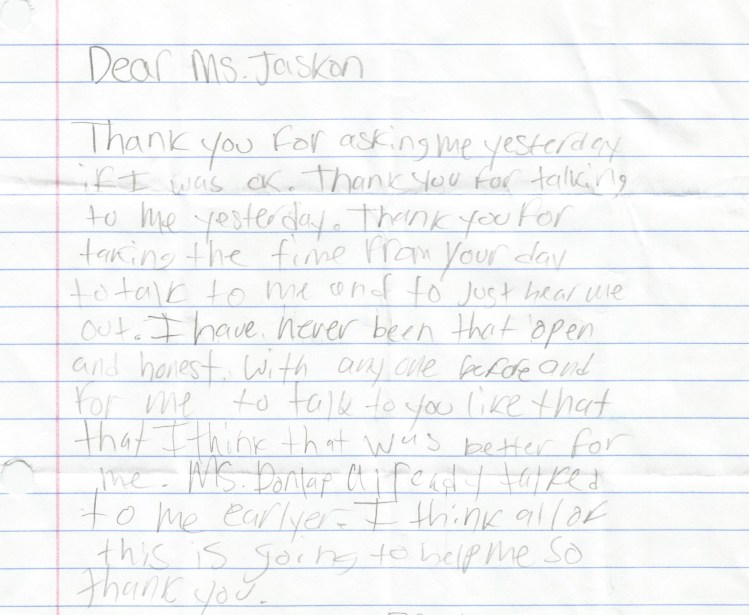 Dear Ms. Jaskon
Thank you for asking me yesterday
if I was ok. Thank you for talking
to me yesterday. Thank you for
taking the time from your day
to talk to me and to just hear me
out. I have never been that open
and honest. with any one before and
for me to talk to you like that
that I think that was better for
me. Ms. Dunlap already talked
to me earlyer. I think all of
this is going to help me so
thank you.